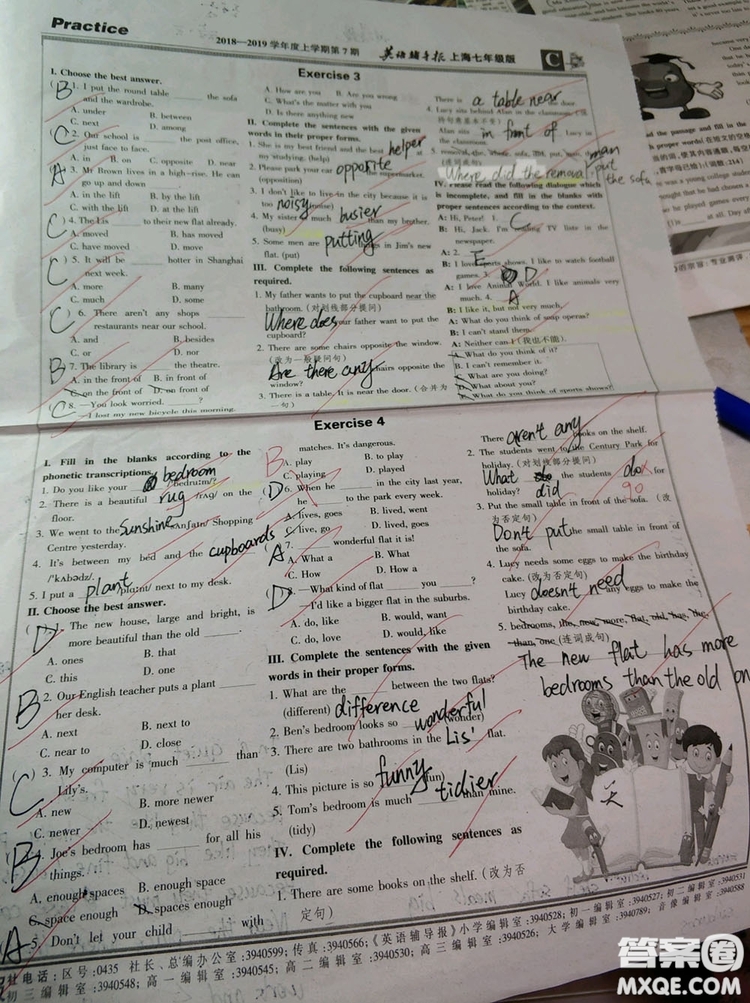 Practice
2018—2019 学年度上学期第 7 期
英语辅导报 上海七年级版
C
Exercise 3
I. Choose the best answer.
B 1. I put the round table the sofa
and the wardrobe.
A. under B. between
C. next D. among
C 2. Our school is the post office,
just face to face.
A. in B. on C. opposite D. near
A 3. Mr Brown lives in a high-rise. He can
go up and down
A. in the lift B. by the lift
C. with the lift D. at the lift
C ) 4. The Lis to their new flat already.
A. moved B. has moved
C. have moved D. move
C ) 5. It will be hotter in Shanghai
next week.
A. more B. many
C. much D. some
C ) 6. There aren't any shops
restaurants near our school.
A. and B. besides
C. or D. nor
B 7. The library is the theatre.
A. in the front of B. in front of
C. on the front of D. on front of
C 8. —You look worried. ?
—I lost my new bicycle this morning.
A. How are you B. Are you wrong
C. What's the matter with you
D. Is there anything new
II. Complete the sentences with the given
words in their proper forms.
1. She is my best friend and the best helper
my studying. (help)
2. Please park your car opposite the supermarket.
(opposition)
3. I don't like to live in the city because it is
too noisy
4. My sister much busier than my brother.
(busy)
5. Some men are putting in Jim's new
flat. (put)
III. Complete the following sentences as
required.
1. My father wants to put the cupboard near the
bathroom. (对划线部分提问)
Where does your father want to put the
cupboard?
2. There are some chairs opposite the window.
(改为一般疑问句)
Are there any chairs opposite the
window?
3. There is a table. It is near the door. (合并为
一句)
There is a table near the door.
4. Lucy sits behind Alan in the classroom.
Alan sits in front of Lucy in
the classroom.
5.
Where did the removal man put the sofa
IV. Please read the following dialogue which
is incomplete, and fill in the blanks with
proper sentences according to the context.
A: Hi, Peter! 1. C
B: Hi, Jack. I'm reading TV lists in the
newspaper.
A: 2. E
B: I love sports shows. I like to watch football
games. 3. D
A: I love Animal World. I like animals very
much. 4. A
B: I like it, but not very much.
A: What do you think of soap operas?
B: I can't stand them.
A: Neither can I (我也不能).
A. What do you think of it?
B. I can't remember it.
C. What are you doing?
D. What about you?
E. What do you think of sports shows?
Exercise 4
I. Fill in the blanks according to the
phonetic transcriptions.
1. Do you like your bedroom /'bedruːm/?
2. There is a beautiful rug /rʌg/ on the
floor.
3. We went to the Sunshine /'sʌnʃaɪn/ Shopping
Centre yesterday.
4. It's between my bed and the cupboards
/'kʌbədz/.
5. I put a plant /plɑːnt/ next to my desk.
II. Choose the best answer.
D 1. The new house, large and bright, is
more beautiful than the old
A. ones B. that
C. this D. one
B 2. Our English teacher puts a plant
her desk.
A. next B. next to
C. near to D. close
C ) 3. My computer is much than
Lily's.
A. new B. more newer
C. newer D. newest
B 4. Joe's bedroom has for all his
things.
A. enough spaces B. enough space
C. space enough D. spaces enough
A 5. Don't let your child with
matches. It's dangerous.
B A. play B. to play
C. playing D. played
(D 6. When he in the city last year,
he to the park every week.
A. lives, goes B. lived, went
C. live, go D. lived, goes
A 7. wonderful flat it is!
A. What a B. What
C. How D. How a
D 8. —What kind of flat you ?
—I'd like a bigger flat in the suburbs.
A. do, like B. would, want
C. do, love D. would, like
III. Complete the sentences with the given
words in their proper forms.
1. What are the between the two flats?
(different) difference
2. Ben's bedroom looks so wonderful (wonder)
3. There are two bathrooms in the Lis' flat.
(Lis)
4. This picture is so funny (fun)
5. Tom's bedroom is much tidier than mine.
(tidy)
IV. Complete the following sentences as
required.
1. There are some books on the shelf. (改为否
定句)
There aren't any books on the shelf.
2. The students went to the Century Park for
holiday. (对划线部分提问)
What the students do for
holiday? did 90
3. Put the small table in front of the sofa. (改
为否定句)
Don't put the small table in front of
the sofa.
4. Lucy needs some eggs to make the birthday
cake. (改为否定句)
Lucy doesn't need any eggs to make the
birthday cake.
5. bedrooms, the, new, more, flat, old, has, the,
than, one (连词成句)
The new flat has more
bedrooms than the old on
社电话:区号:0435 社长、总编办公室:3940599;传真:3940566;《英语辅导报》小学编辑室:3940528;初一编辑室:3940527;初二编辑室:3940531
初三编辑室:3940548;高一编辑室:3940545;高二编辑室:3940530;高三编辑室:3940526;大学编辑室:3940789;音像编辑室:3940588
答案圈
MXQE.COM